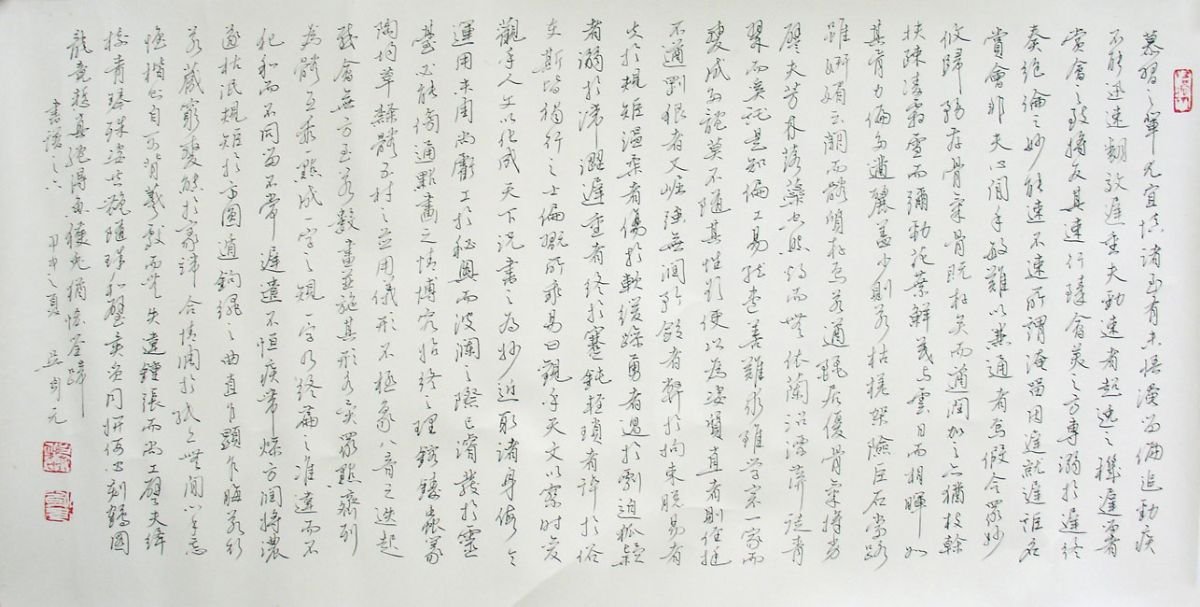 慕習之輩尤宜慎諸至有未悟淹留偏追勁疾
不能迅速翻效遲重夫勁速者超逸之機遲留者
賞會之致將反其速行臻會美之方專溺於遲終
爽絕倫之妙能速不速所謂淹留因遲就遲詎名
賞會非夫心閑手敏難以兼通者焉假令眾妙
攸歸務存骨氣骨既存矣而遒潤加之亦猶枝幹
扶疎凌霜雪而彌勁花葉鮮茂與雲日而相暉如
其骨力偏多遒麗蓋少則若枯槎架險巨石當路
雖妍媚云闕而體質存焉若遒麗居優骨氣將劣
譬夫芳林落蘂空照灼而無依蘭沼漂萍徒青
翠而奚託是知偏工易就盡善難求雖學宗一家而
變成多體莫不隨其性欲便以為姿質直者則徑挺
不遒剛狠者又崛強無潤矜斂者弊於拘束脫易者
失於規矩溫柔者傷於軟緩躁勇者過於剽迫狐疑
者溺於滯澀遲重者終於蹇鈍輕瑣者淬於俗
吏斯皆獨行之士偏翫所乖易曰觀乎天文以察時變
觀乎人文以化成天下況書之為妙近取諸身假令
運用未周尚虧工於秘奧而波瀾之際已濬發於靈
臺必能傍通點畫之情博究始終之理鎔鑄蟲篆
陶均草隸體五材之並用儀形不極象八音之迭起
感會無方至若數畫並施其形各異眾點齊列
為體互乖一點成一字之規一字乃終篇之准違而不
犯和而不同留不常遲遣不恒疾帶燥方潤將濃
遂枯泯規矩於方圓遁鉤繩之曲直乍顯乍晦若行
若藏窮變態於豪端合情調於紙上無間心手忘
懷楷則自可背羲獻而無失違鍾張而尚工譬夫絳
樹青琴殊姿共艷隨珠和璧異質同妍何必刻鶴圖
龍竟慙真體得魚獲兔猶恡筌蹄
書譜之六 甲申之夏